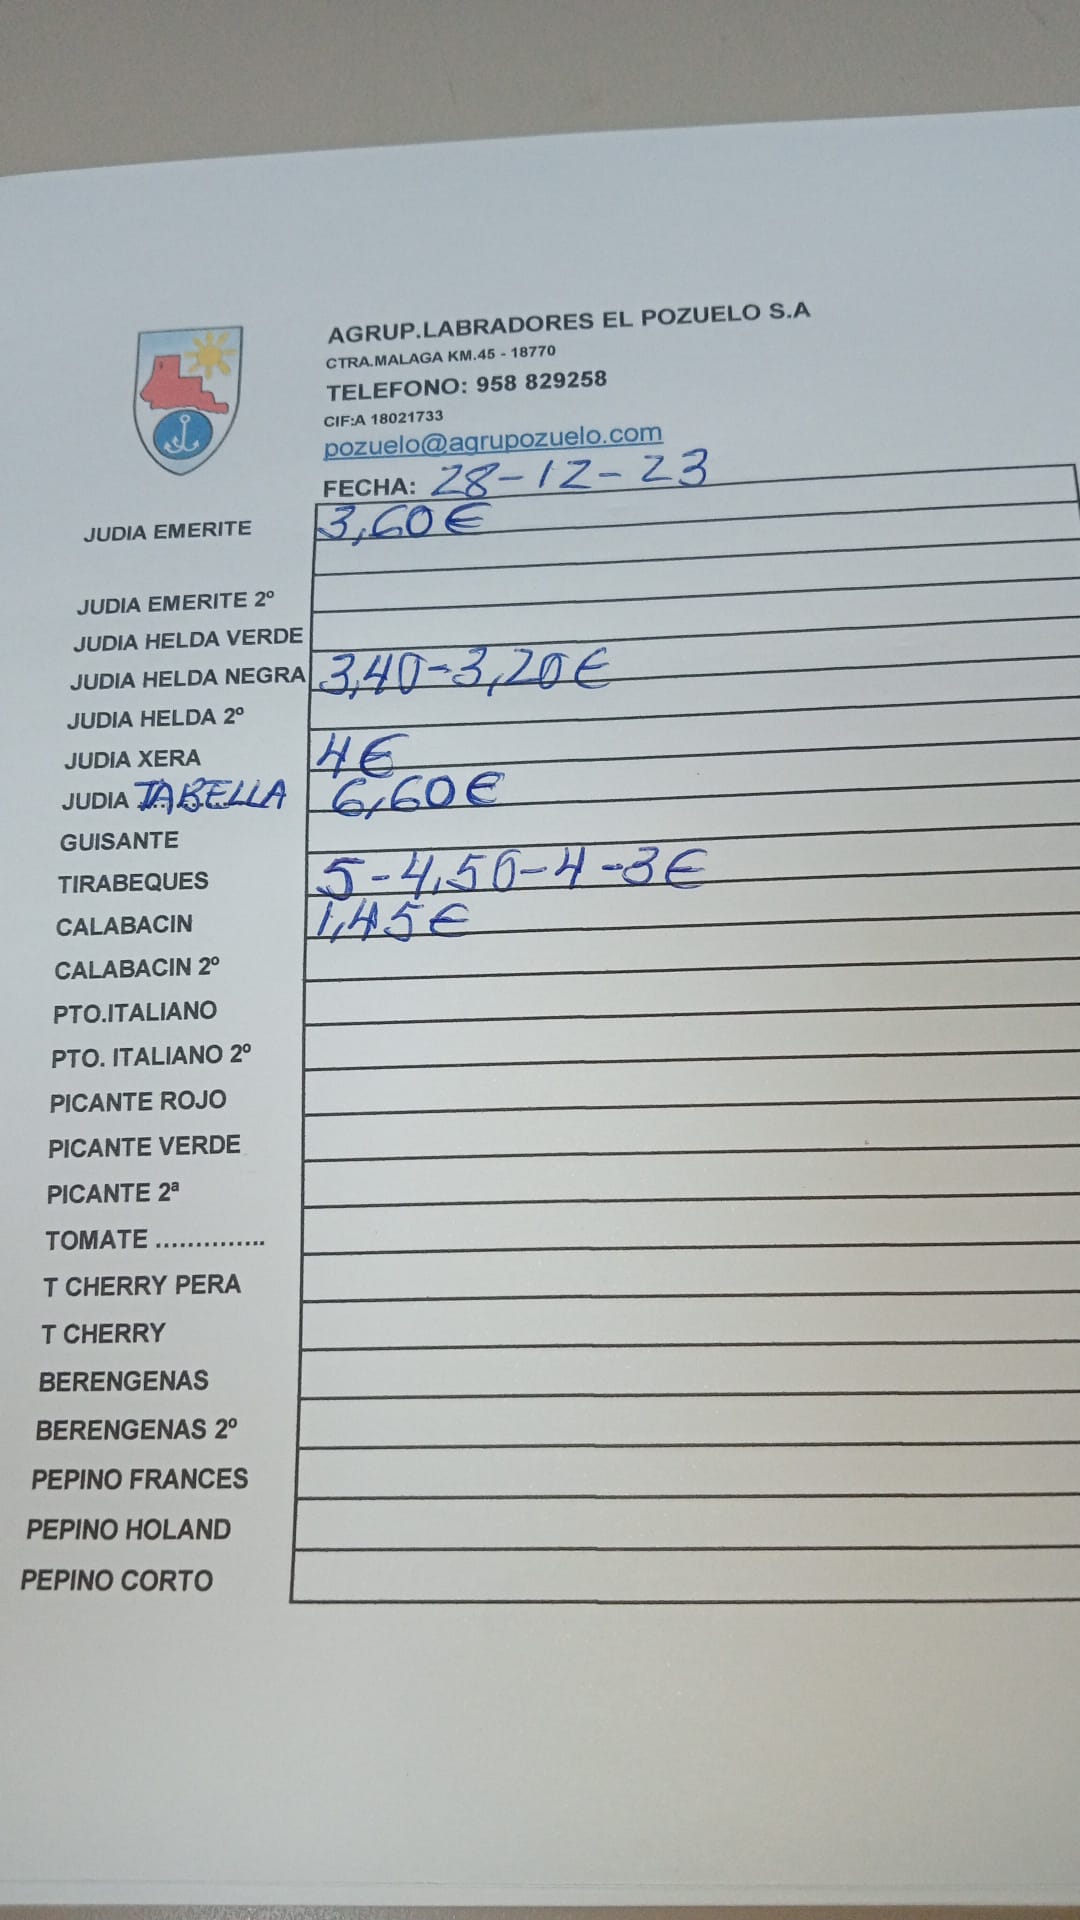 AGRUP.LABRADORES EL POZUELO S.A
CTRA.MALAGA KM.45 - 18770
TELEFONO: 958 829258
CIF:A 18021733
pozuelo@agrupozuelo.com
FECHA: 28-12-23
JUDIA EMERITE 3,60€
JUDIA EMERITE 2º
JUDIA HELDA VERDE
JUDIA HELDA NEGRA 3,40-3,20€
JUDIA HELDA 2º
JUDIA XERA 4€
JUDIA TABELLA 6,60€
GUISANTE
TIRABEQUES 5-4,50-4-3€
CALABACIN 1,45€
CALABACIN 2º
PTO.ITALIANO
PTO. ITALIANO 2º
PICANTE ROJO
PICANTE VERDE
PICANTE 2ª
TOMATE ..............
T CHERRY PERA
T CHERRY
BERENGENAS
BERENGENAS 2º
PEPINO FRANCES
PEPINO HOLAND
PEPINO CORTO